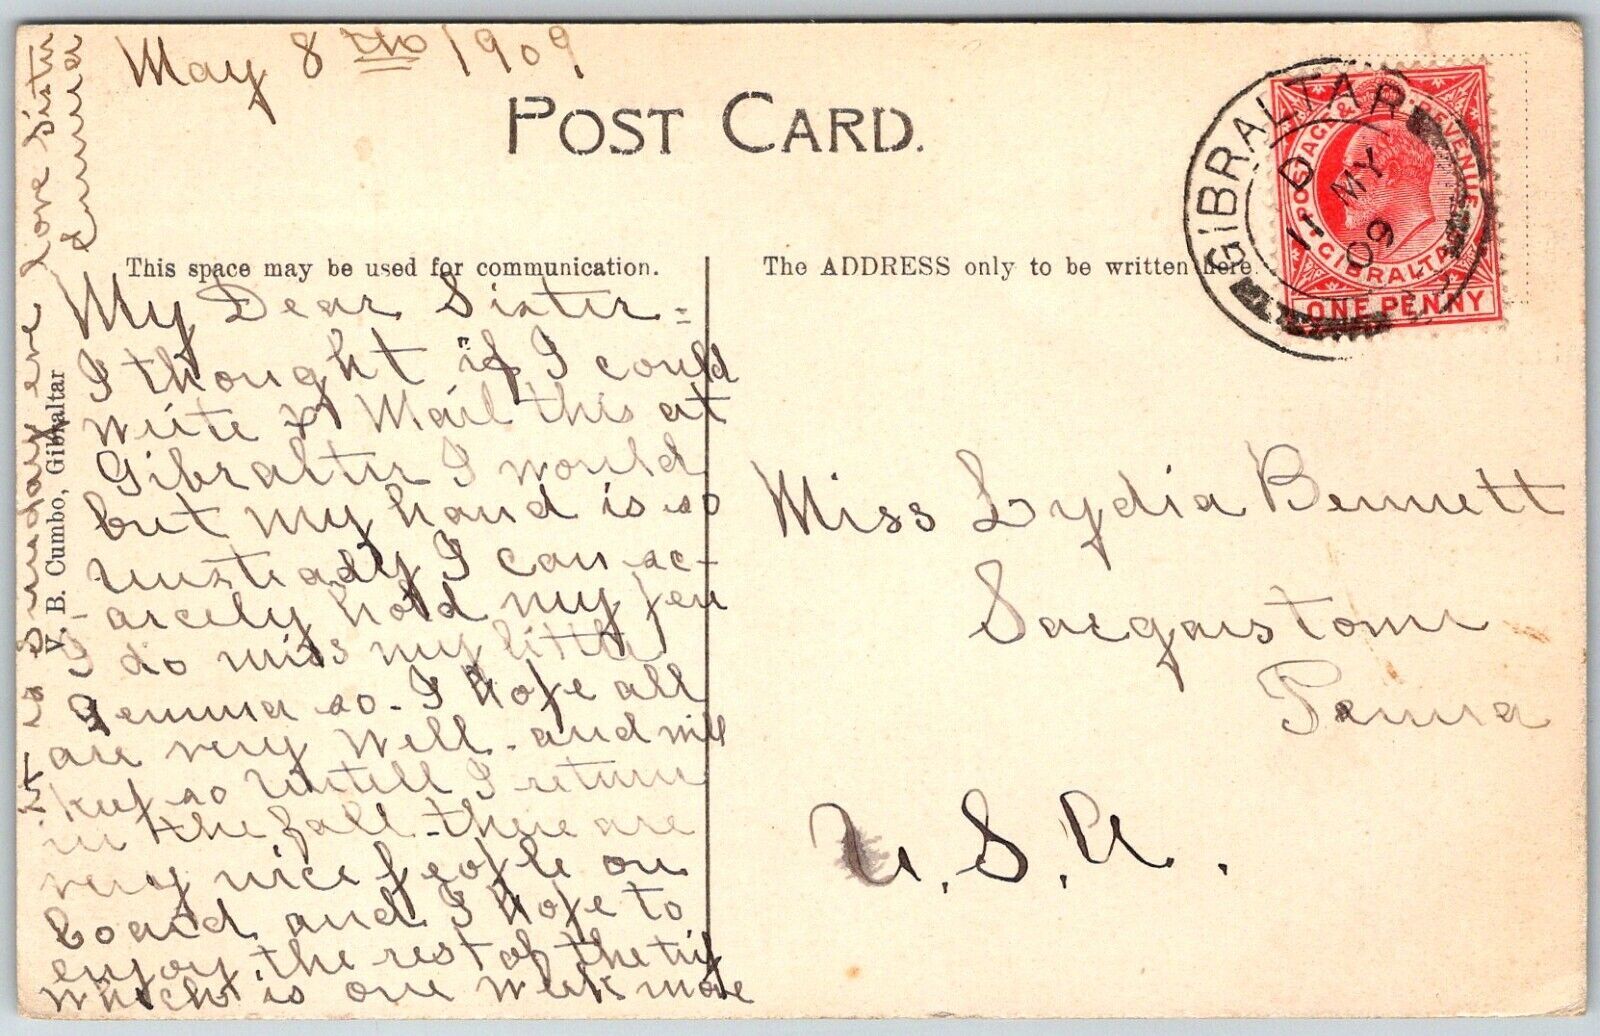 May 8th 1909
POST CARD.
This space may be used for communication.
The ADDRESS only to be written here.
GIBRALTAR
D
11 MY
09
POSTAGE & REVENUE
GIBRALTAR
ONE PENNY
My Dear Sister =
I thought if I could
write & Mail this at
Gibralter I would
but my hand is so
unsteady I can sc-
arcely hold my pen
I do miss my little
Jemma so - I hope all
are very well - and will
keep so untill I return
in the fall - there are
very nice people on
board and I hope to
enjoy the rest of the trip
which is one week more
it is Sunday eve love Sister
Emma
V. B. Cumbo, Gibraltar
Miss Lydia Bennett
Saegerstown
Penna
U.S.A.